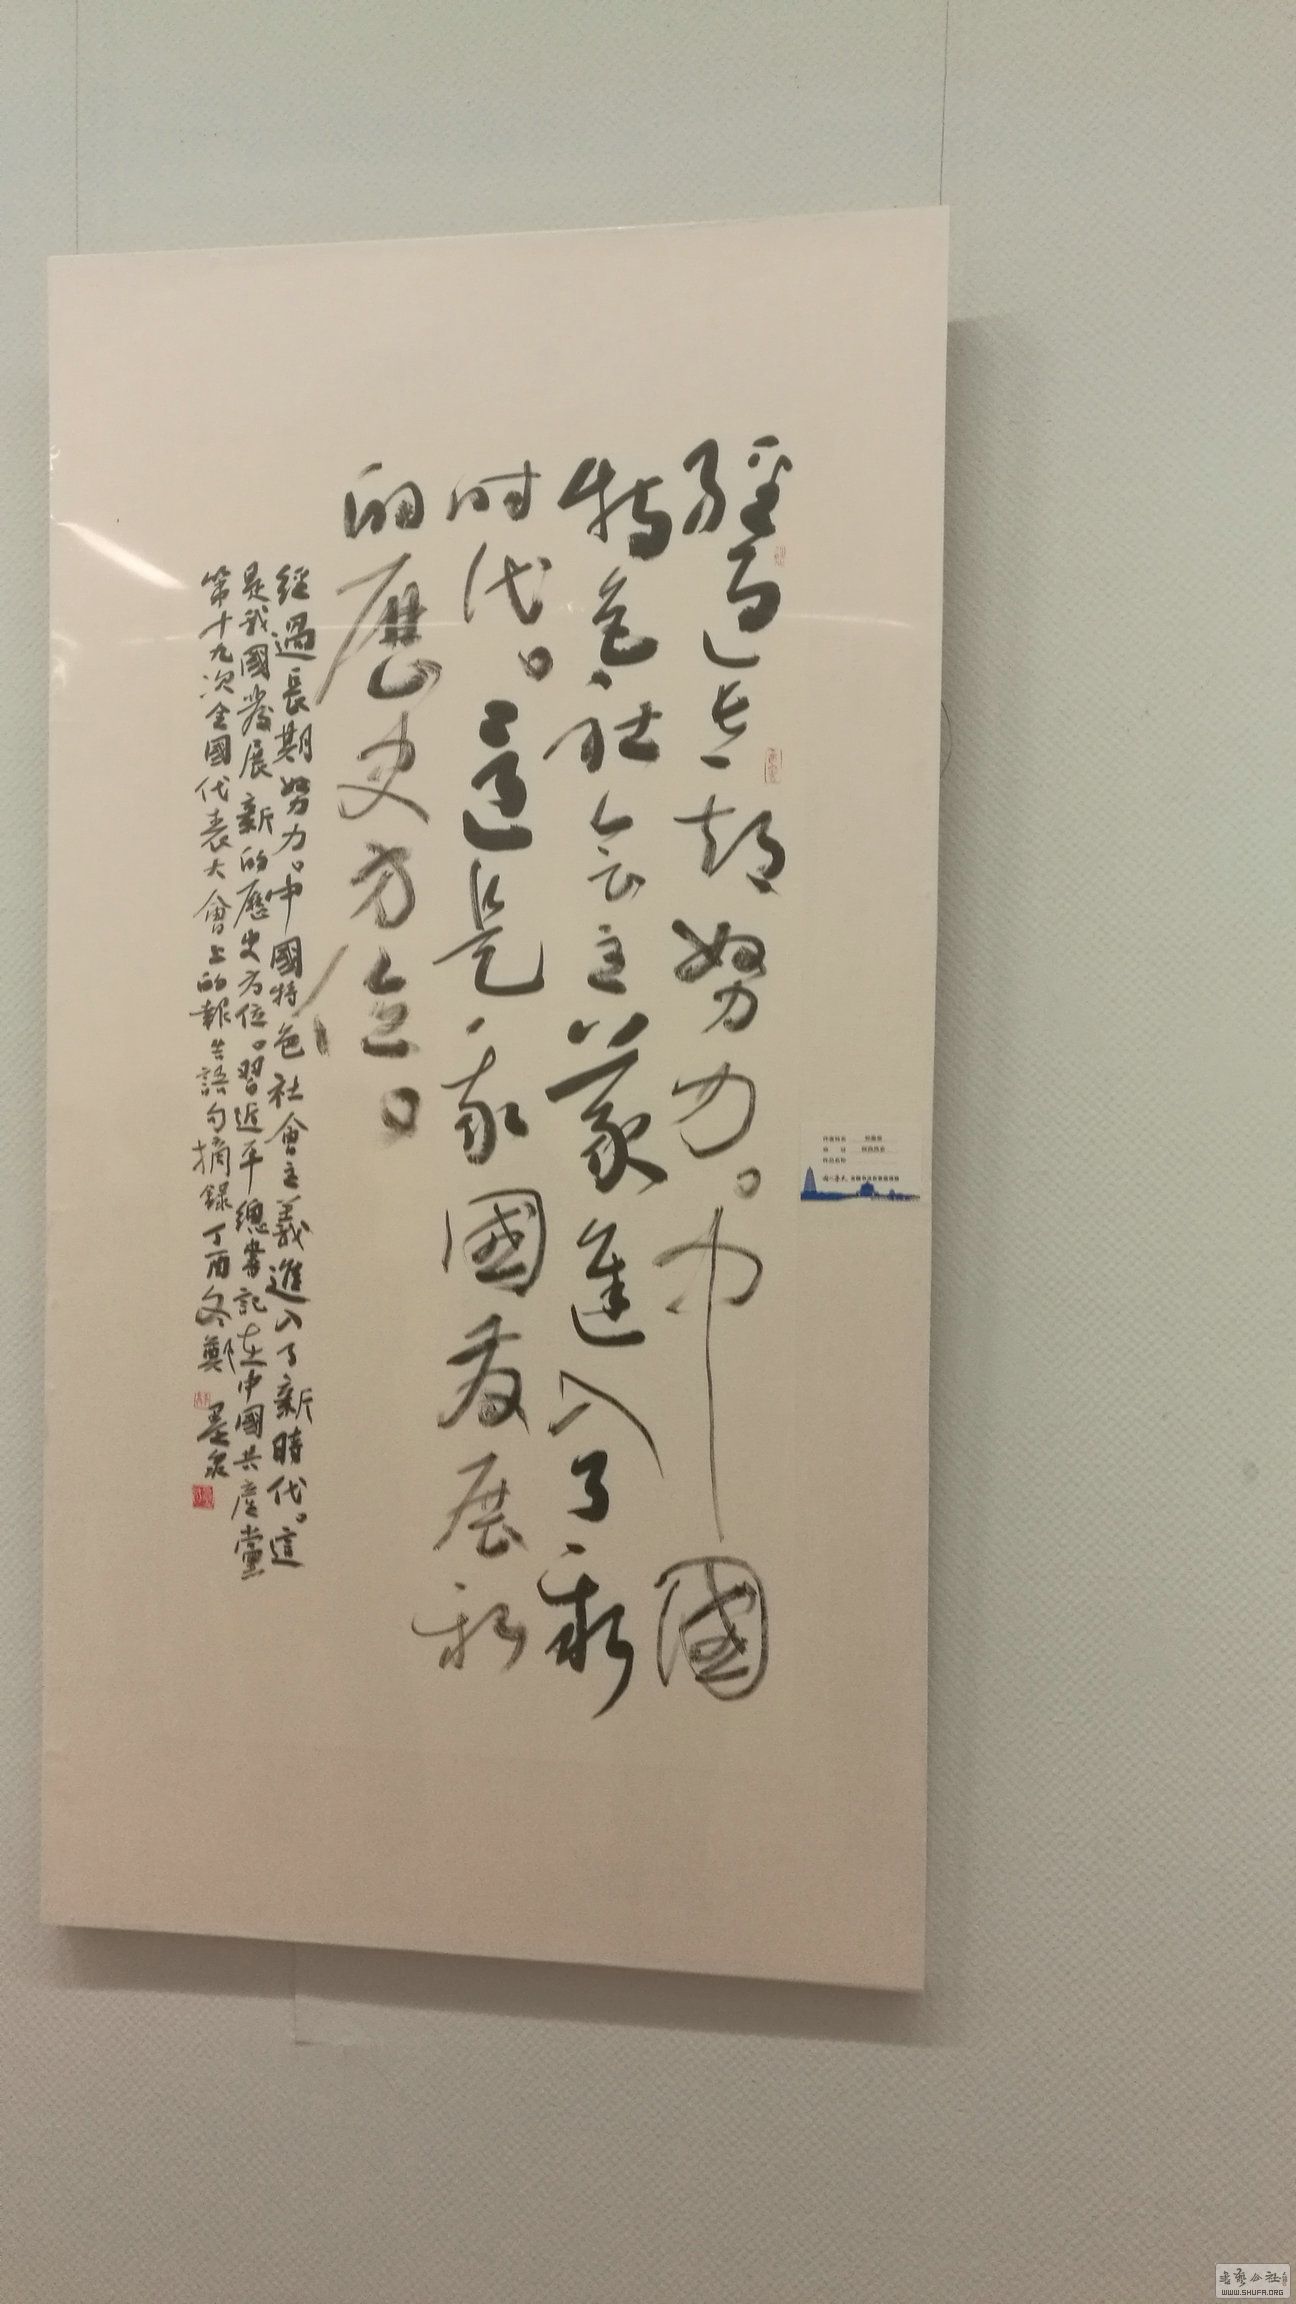 經過長期努力。中國
特色社会主義進入了新
时代。這是我國發展新
的歷史方位。
經過長期努力。中國特色社會主義進入了新時代。這
是我國發展新的歷史方位。習近平總書記在中國共產黨
第十九次全國代表大會上的報告語句摘錄丁酉冬鄭墨泉
书艺公社
WWW.SHUFA.ORG